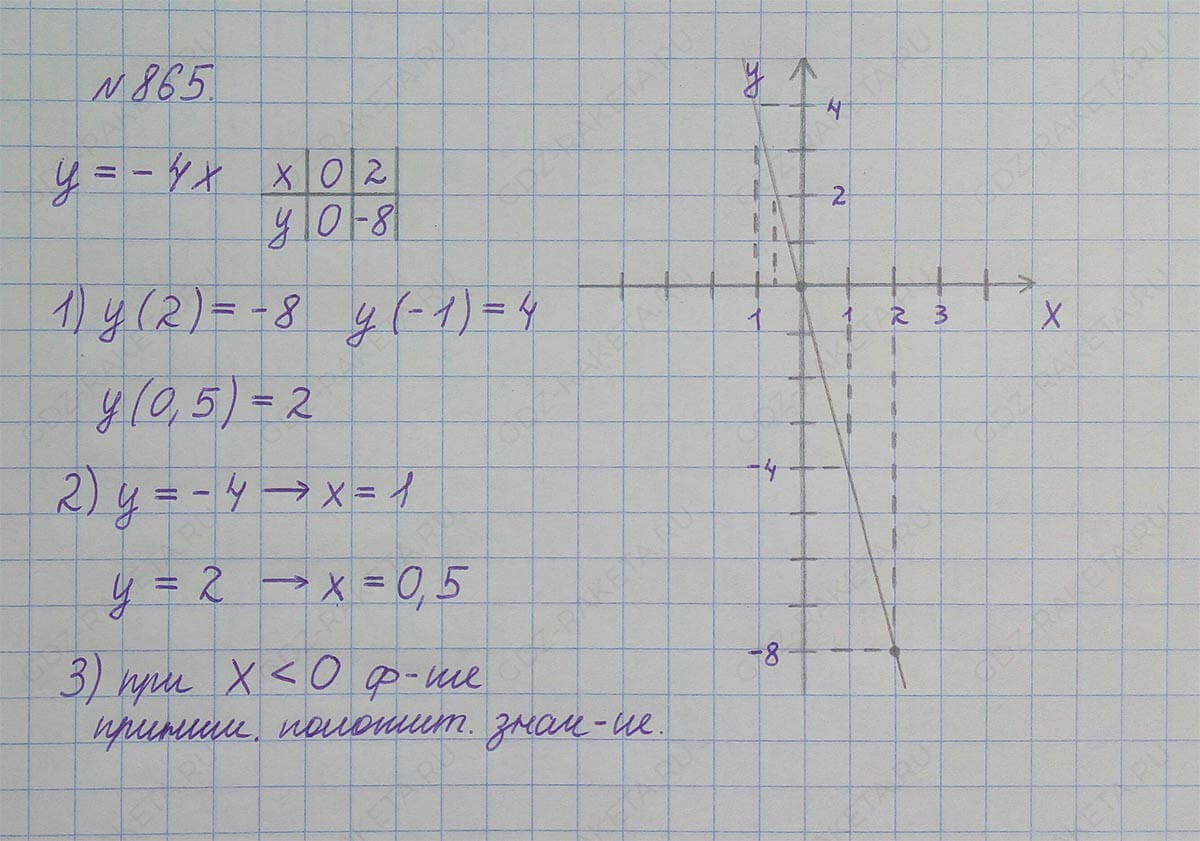 №865.
y = -4x
x 0 2
y 0 -8
1) y(2) = -8 y(-1) = 4
y(0,5) = 2
2) y = -4 → x = 1
y = 2 → x = 0,5
3) при x < 0 ф-ие
приним. положит. знач-ие.
y
4
2
1 1 2 3 x
-4
-8
GDZ-RAKETA.RU